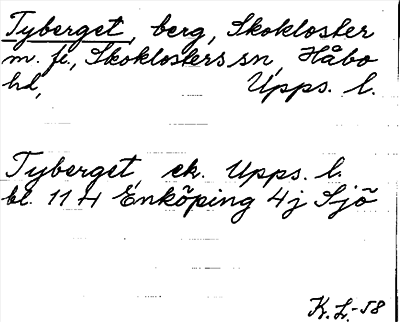 Tyberget, berg, Skokloster
m. fl., Skoklosters sn, Håbo
hd, Upps. l.
Tyberget, ek. Upps. l.
bl. 11 H Enköping 4j Sjö
K.L.-58